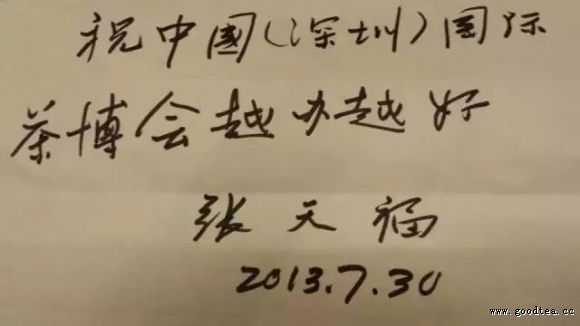 祝中國(深圳)国际
茶博会越办越好
张天福
2013.7.30
www.goodtea.cc